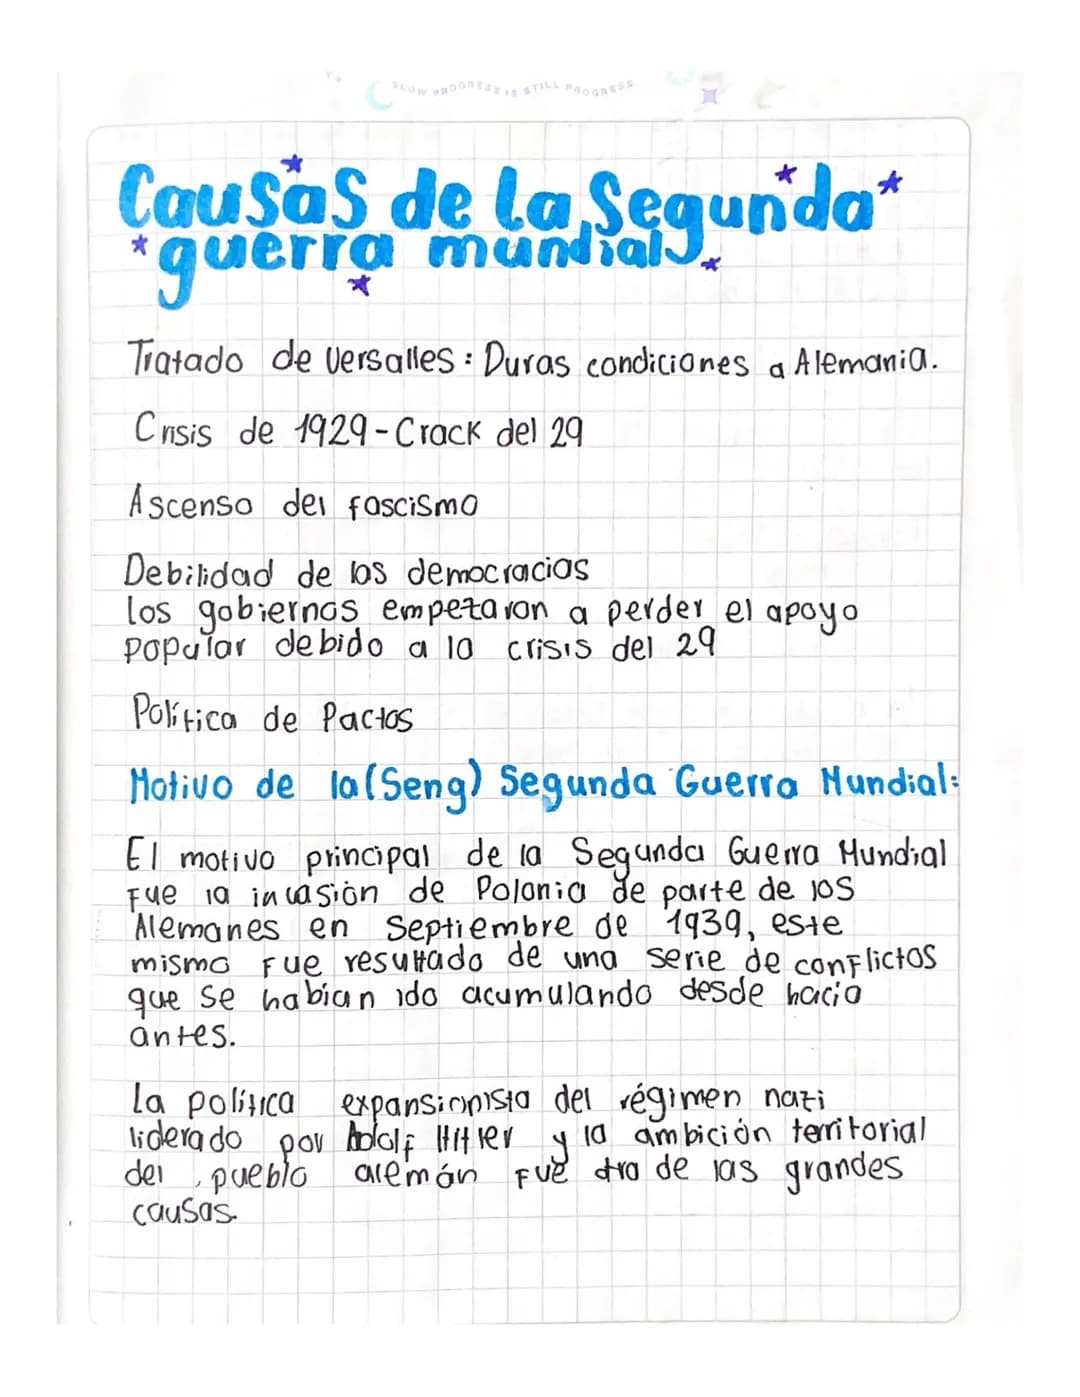 SLOW PROGRESS IS STILL PROGRESS
Causas de la Segunda
guerra mundial
Tratado de Versalles: Duras condiciones a Alemania.
Crisis de 1929-Crack del 29
Ascenso del fascismo
Debilidad de las democracias
los gobiernos empezaron a perder el apoyo
popular debido a la crisis del 29
Política de Pactos
Motivo de la (Seng) Segunda Guerra Mundial:
El motivo principal de la Segunda Guerra Mundial
fue la invasión de Polonia de parte de los
Alemanes en Septiembre de 1939, este
mismo fue resultado de una serie de conflictos
que se habian ido acumulando desde hacia
antes.
La política expansionista del régimen nazi
liderado por Adolf Hitler y la ambición territorial
del pueblo alemán fue otra de las grandes
causas.